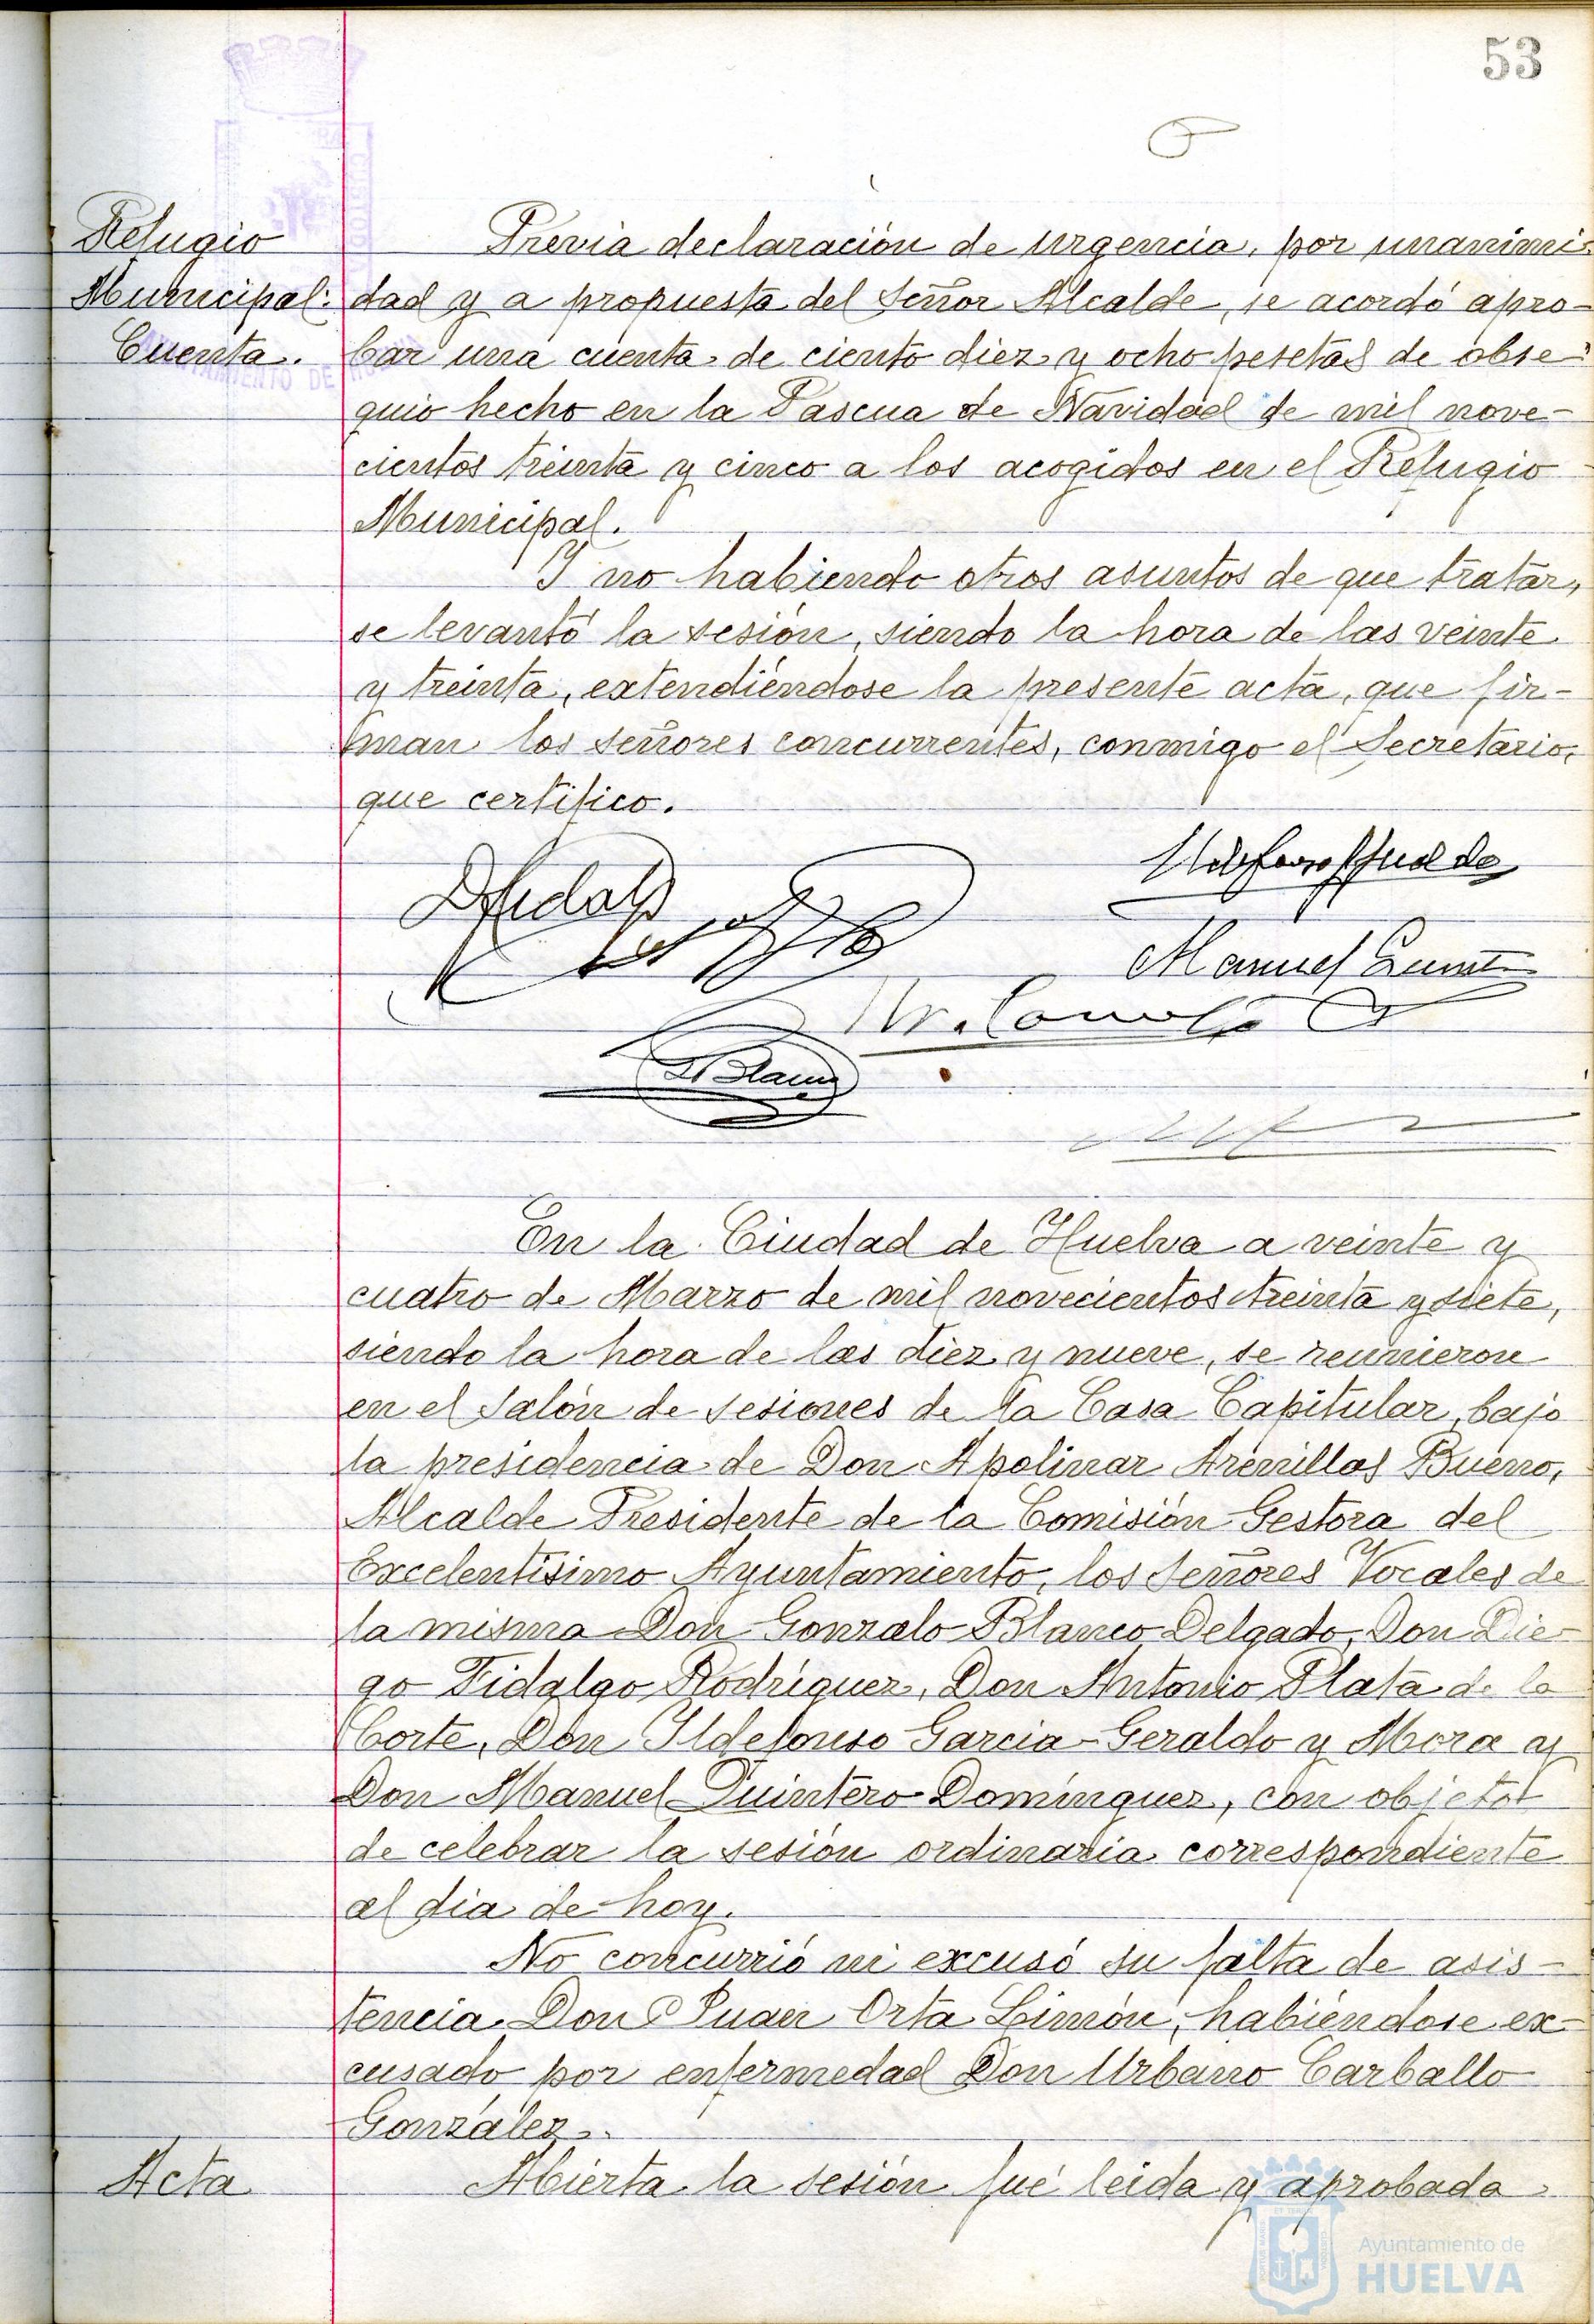 53
Refugio
Municipal:
Cuenta.
Previa declaración de urgencia, por unanimi-
dad y a propuesta del Señor Alcalde, se acordó apro-
bar una cuenta de ciento diez y ocho pesetas de obse-
quio hecho en la Pascua de Navidad de mil nove-
cientos treinta y cinco a los acogidos en el Refugio
Municipal.
Y no habiendo otros asuntos de que tratar,
se levantó la sesión, siendo la hora de las veinte
y treinta, extendiéndose la presente acta, que fir-
man los señores concurrentes, conmigo el Secretario,
que certifico.
Manuel
Blanco
En la Ciudad de Huelva a veinte y
cuatro de Marzo de mil novecientos treinta y siete,
siendo la hora de las diez y nueve, se reunieron
en el Salón de sesiones de la Casa Capitular, bajo
la presidencia de Don Apolinar Arenillas Bueno,
Alcalde Presidente de la Comisión Gestora del
Excelentísimo Ayuntamiento, los Señores Vocales de
la misma Don Gonzalo Blanco Delgado, Don Die-
go Fidalgo Rodríguez, Don Antonio Plata de la
Corte, Don Ildefonso Garcia-Geraldo y Mora y
Don Manuel Quintero Domínguez, con objeto
de celebrar la sesión ordinaria correspondiente
al día de hoy.
No concurrió ni excusó su falta de asis-
tencia Don Juan Orta Limón, habiéndose ex-
cusado por enfermedad Don Urbano Carballo
González.
Acta
Abierta la sesión fué leida y aprobada
Ayuntamiento de
HUELVA